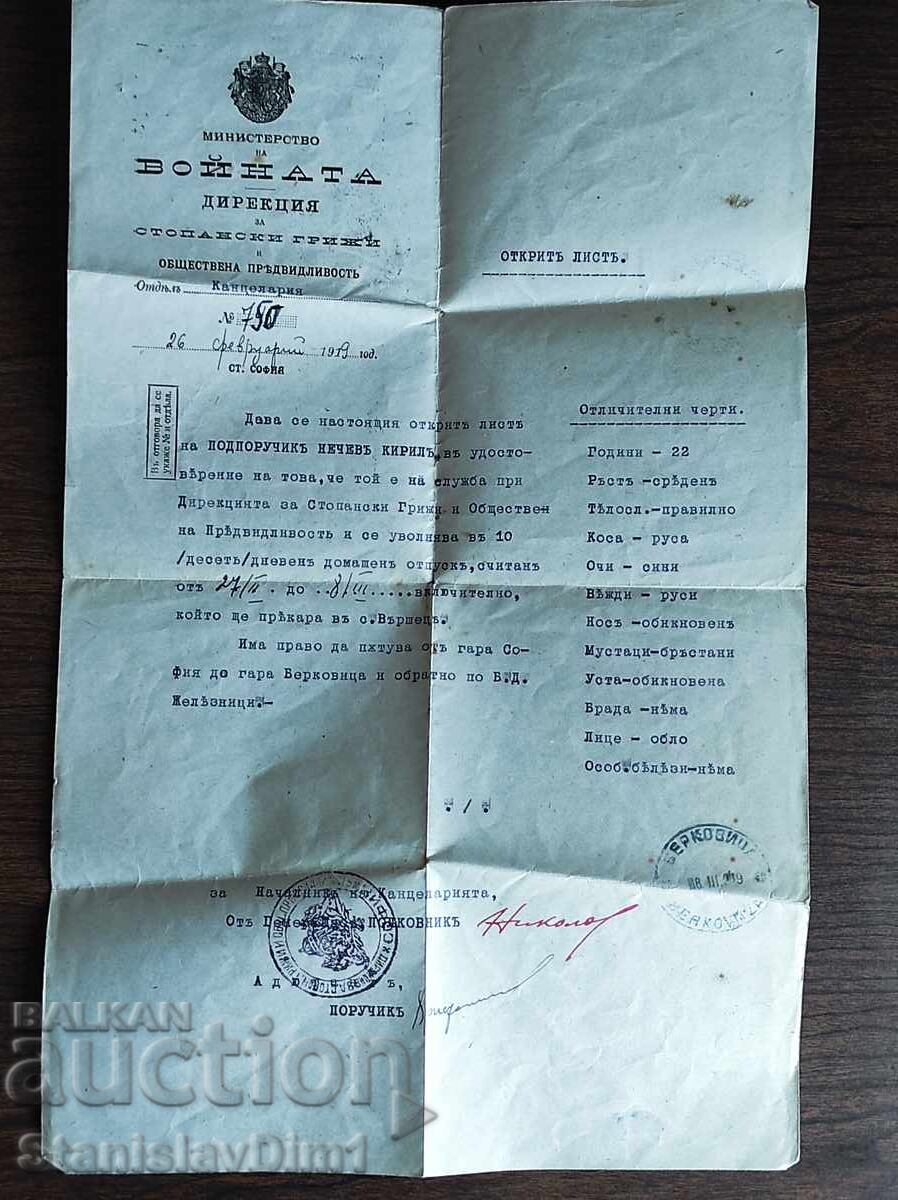 МИНИСТЕРСТВО
НА
ВОЙНАТА
ДИРЕКЦИЯ
ЗА
СТОПАНСКИ ГРИЖИ
И
ОБЩЕСТВЕНА ПРѢДВИДЛИВОСТЬ
Отдѣлъ Канцелария
№ 750
26 февруарий 1919 год.
СТ. СОФИЯ
Въ отговора да се
укаже № и отдѣла.
Дава се настоящия открить листъ
на ПОДПОРУЧИКЪ НЕЧЕВЪ КИРИЛЪ, въ удосто-
вѣрение на това, че той е на служба при
Дирекцията за Стопански Грижи и Обществен
на Прѣдвидливость и се уволнява въ 10
/десеть/дневенъ домашенъ отпускъ, считанъ
отъ 27/II . до ..8/III.....включително,
който ще прѣкара въ с.Вършецъ.
Има право да пѫтува отъ гара Со-
фия до гара Берковица и обратно по Б.Д.
Желѣзници.-
ОТКРИТЪ ЛИСТЪ.
Отличителни черти.
Години - 22
Ръстъ -срѣденъ
Тѣлосл.-правилно
Коса - руса
Очи - сини
Вѣжди - руси
Носъ -обикновенъ
Мустаци-бръстани
Уста-обикновена
Брада -нѣма
Лице - обло
Особ.бѣлѣзи-нѣма
./.
за Началникъ на Канцеларията,
Отъ ПОЛКОВНИКЪ Николов
ПОРУЧИКЪ
БЕРКОВИЦА
BALKAN
auction
StanislavDim1